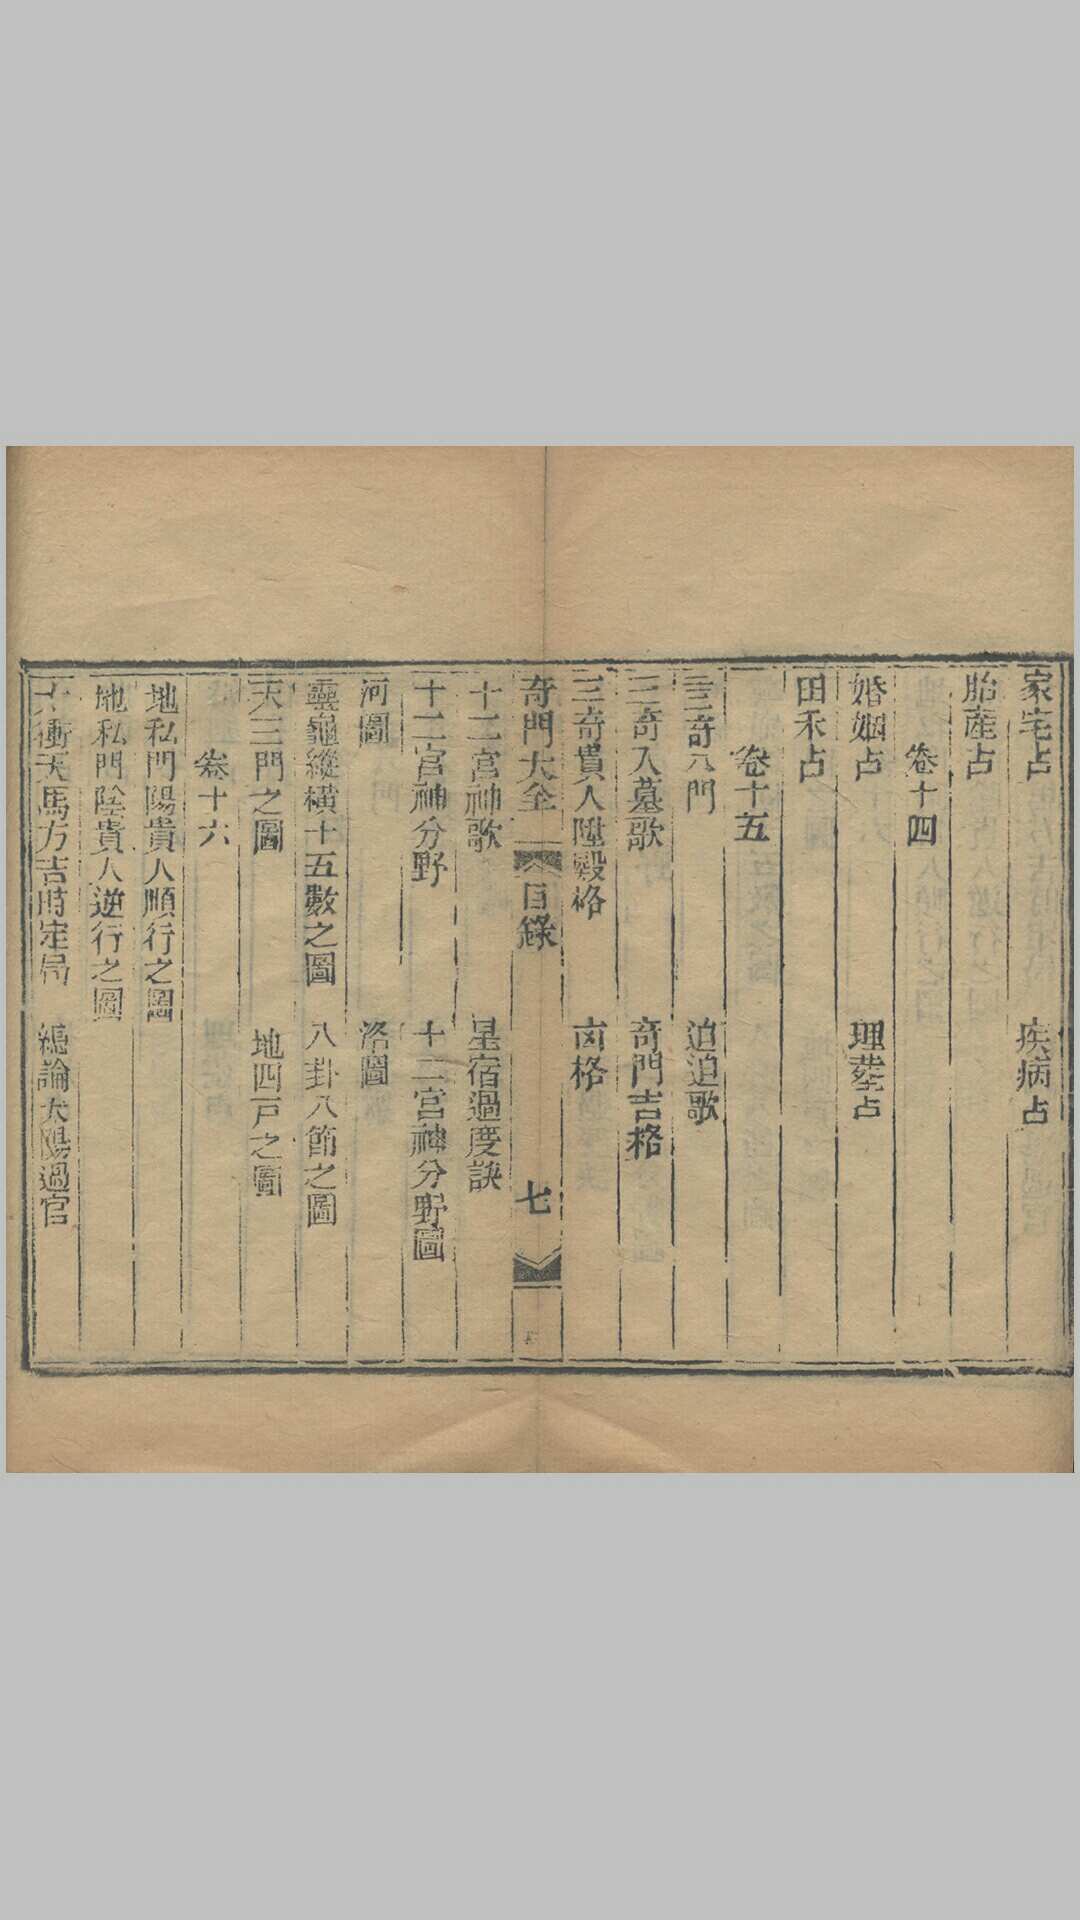 家宅占　疾病占
胎產占
卷十四
婚姻占　理塟占
田禾占
卷十五
三奇八門　迫迫歌
三奇入墓歌　奇門吉格
三奇貴人陞殿格　凶格
奇門大全　目錄　七
十二宮神歌　星宿過度訣
十二宮神分野　十二宮神分野圖
河圖　洛圖
靈龜縱橫十五數之圖　八卦八節之圖
天三門之圖　地四戸之圖
卷十六
地私門陽貴人順行之圖
地私門陰貴人逆行之圖
太衝天馬方吉時定局　總論太陽過宮